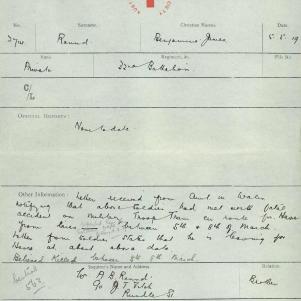 No. Surname. Christian Names. Date.
Round. Benjamin James 5.5.19
Rank Regiment, &c. File No.
Private 32nd Battalion
Official Reports:
None to date
Other Information: Letter received from Aunt in Wales
notifying that above soldier had met with fatal
accident on Military Troop Train en route for Havre
from between 5th & 8th of March.
Letter from soldier states that he is leaving for
Havre at about above date.
Believed Killed between 5th 8th March.
Inquirer's Name and Address Relation.
A B Round Brother
c/o J J
St